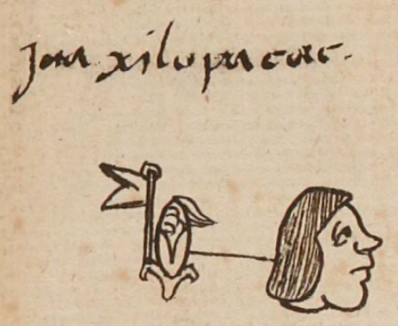 juā xilopacac.